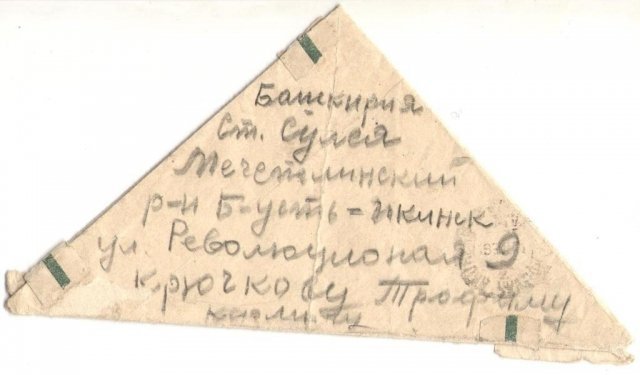 Башкирия
Ст. Сулея
Мечетлинский
р-н Б-усть=Икинск
ул. Революционая 9
Крючкову Трофиму